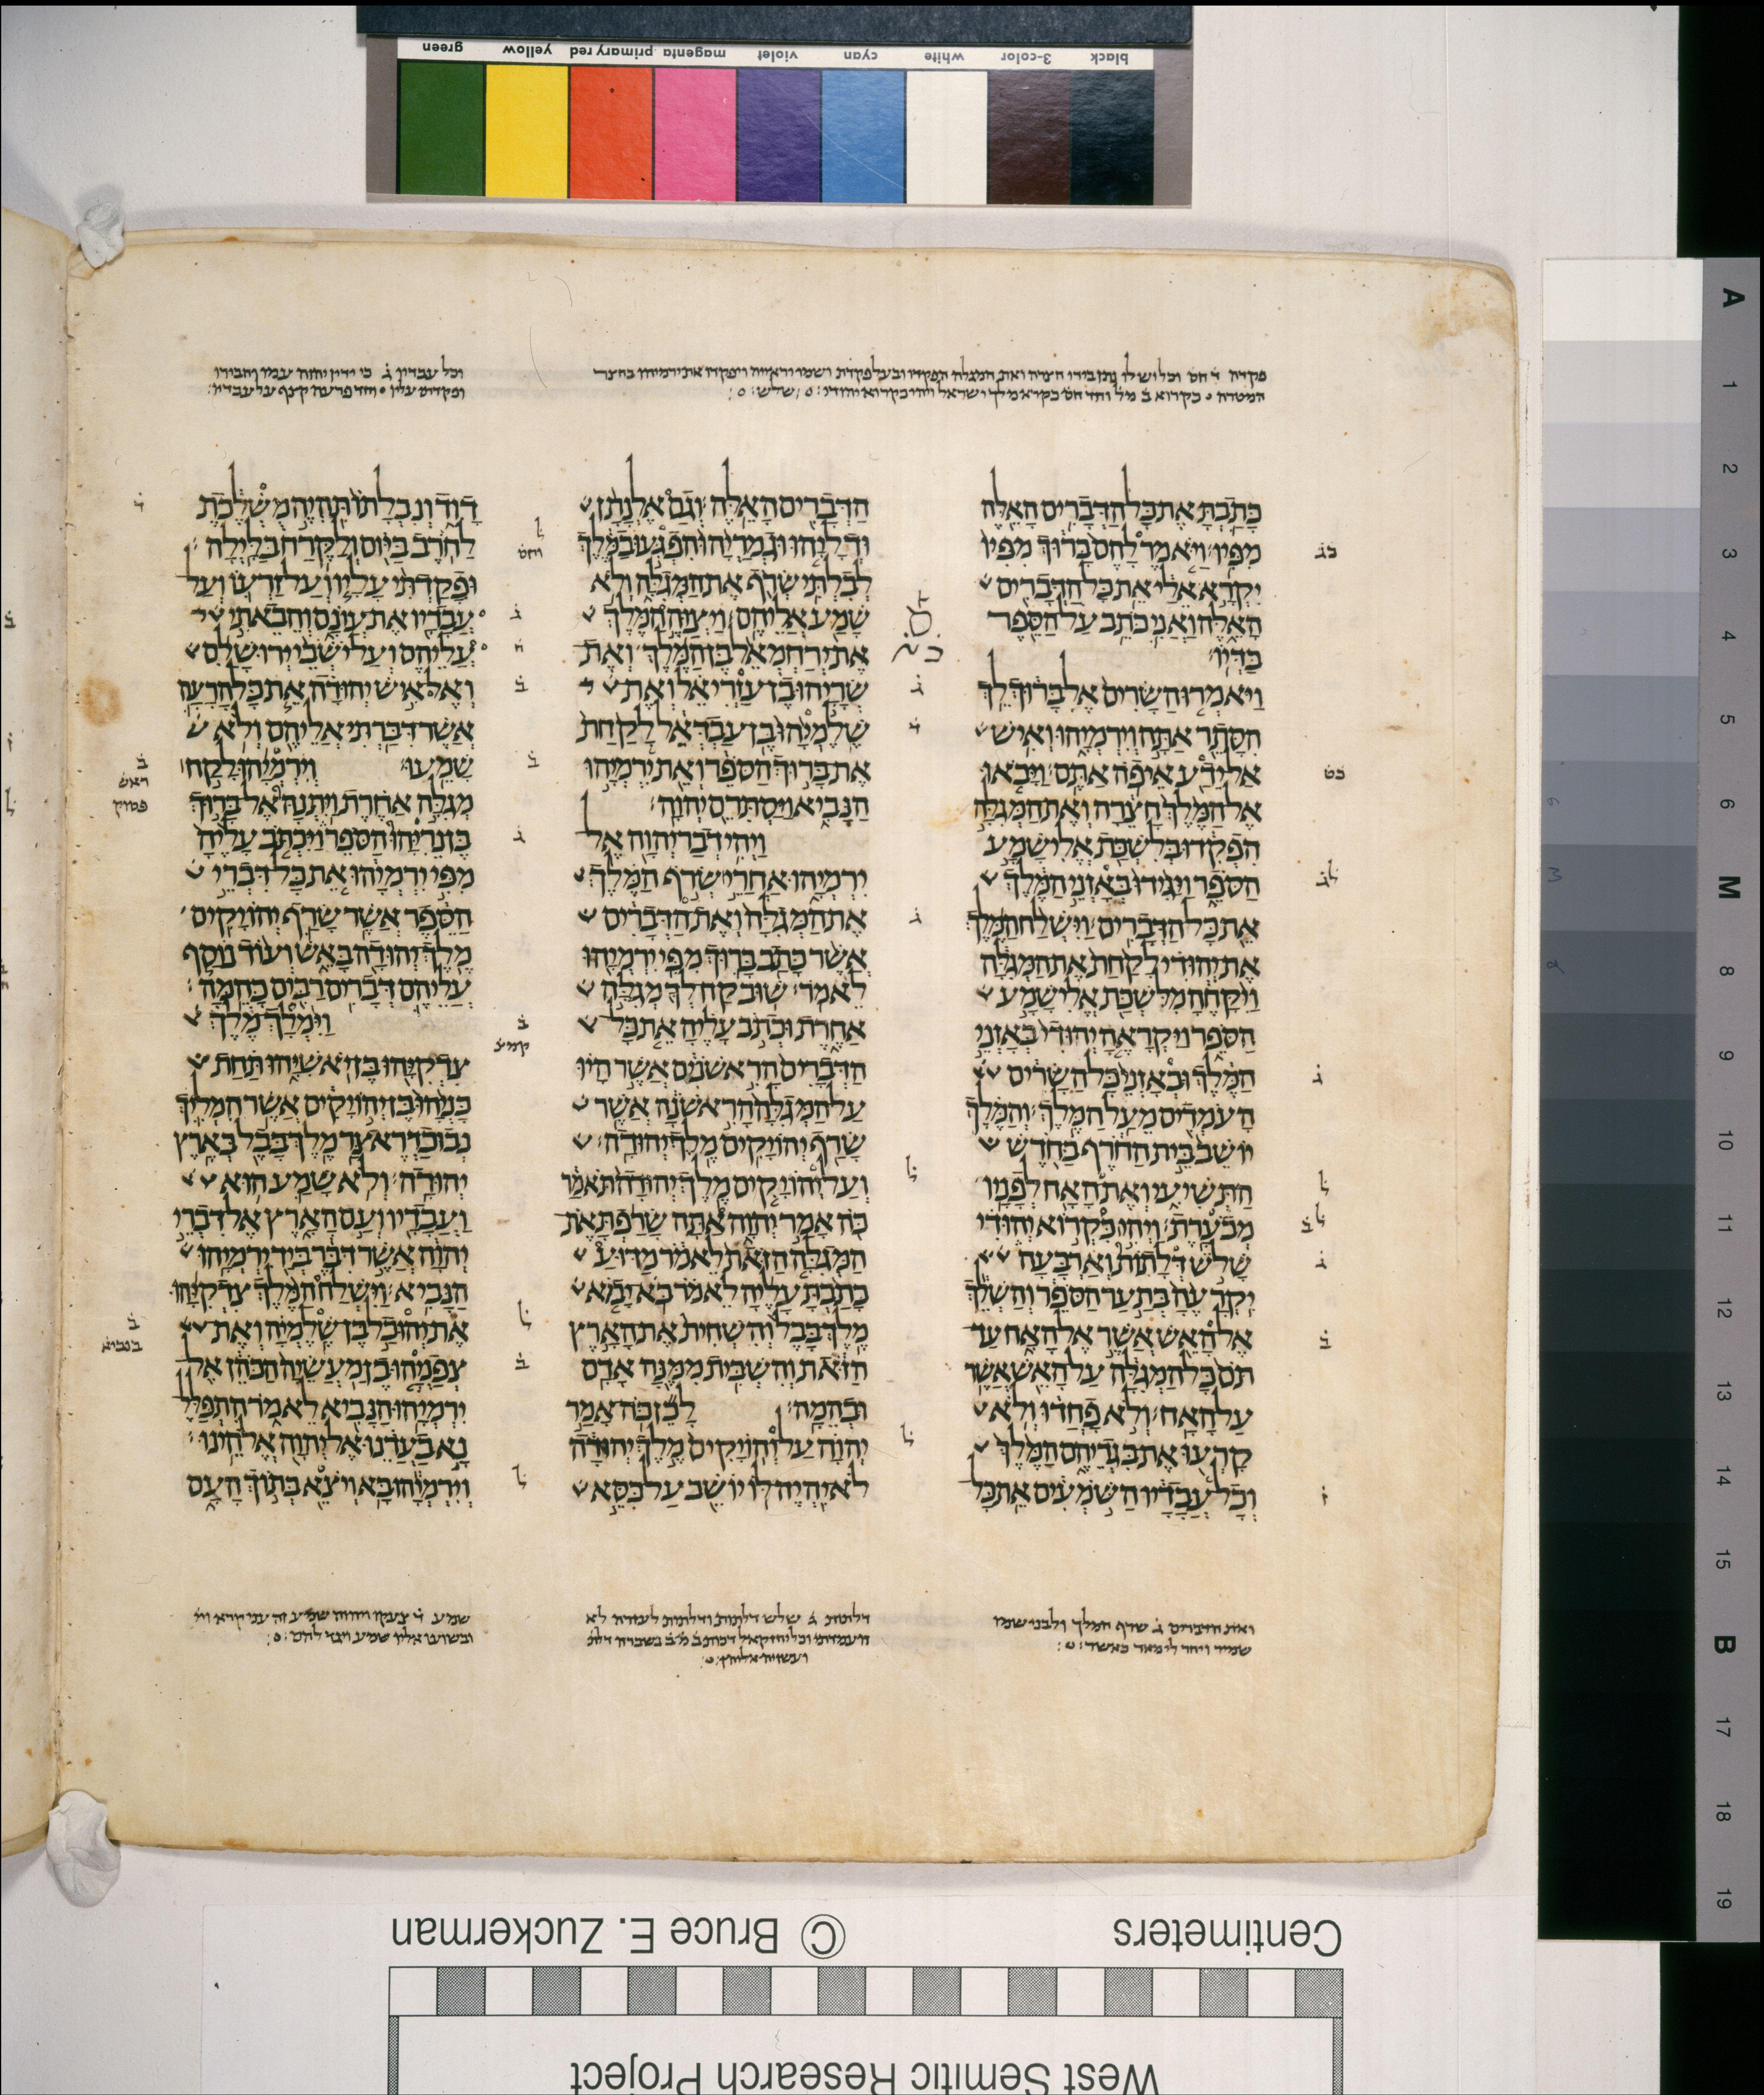 green yellow primary red magenta violet cyan white 3-color black
וכל עבדיו ג כי ידין יהוה עמו וחבירו
ופקדתי עליו וחד פרעה קצף על עבדיו
המטרה בקרוא ב מל וחד חס בקרא מלך ישראל ויהי כקרוא יהודי שלש
כתבת את כל הדברים האלה
מפיו ויאמר להם ברוך מפיו
יקרא אלי את כל הדברים
האלה ואני כתב על הספר
בדיו
ויאמרו השרים אל ברוך לך
הסתר אתה וירמיהו ואיש
אל ידע איפה אתם ויבאו
אל המלך חצרה ואת המגלה
הפקדו בלשכת אלישמע
הספר ויגידו באזני המלך
את כל הדברים וישלח המלך
את יהודי לקחת את המגלה
ויקחה מלשכת אלישמע
הספר ויקראה יהודי באזני
המלך ובאזני כל השרים
העמדים מעל המלך והמלך
יושב בית החרף בחדש
התשיעי ואת האח לפניו
מבערת ויהי כקרוא יהודי
שלש דלתות וארבעה
יקרעה בתער הספר והשלך
אל האש אשר אל האח עד
תם כל המגלה על האש אשר
על האח ולא פחדו ולא
קרעו את בגדיהם המלך
וכל עבדיו השמעים את כל
הדברים האלה וגם אלנתן
ודליהו וגמריהו הפגעו במלך
לבלתי שרף את המגלה ולא
שמע אליהם ויצוה המלך
את ירחמאל בן המלך ואת
שריהו בן עזריאל ואת
שלמיהו בן עבדאל לקחת
את ברוך הספר ואת ירמיהו
הנביא ויסתרם יהוה
ויהי דבר יהוה אל
ירמיהו אחרי שרף המלך
את המגלה ואת הדברים
אשר כתב ברוך מפי ירמיהו
לאמר שוב קח לך מגלה
אחרת וכתב עליה את כל
הדברים הראשנים אשר היו
על המגלה הראשנה אשר
שרף יהויקים מלך יהודה
ועל יהויקים מלך יהודה תאמר
כה אמר יהוה אתה שרפת את
המגלה הזאת לאמר מדוע
כתבת עליה לאמר בא יבוא
מלך בבל והשחית את הארץ
הזאת והשבית ממנה אדם
ובהמה לכן כה אמר
יהוה על יהויקים מלך יהודה
לא יהיה לו יושב על כסא
דוד ונבלתו תהיה משלכת
לחרב ביום ולקרח בלילה
ופקדתי עליו ועל זרעו ועל
עבדיו את עונם והבאתי
עליהם ועל ישבי ירושלם
ואל איש יהודה את כל הרעה
אשר דברתי אליהם ולא
שמעו וירמיהו לקח
מגלה אחרת ויתנה אל ברוך
בן נריהו הספר ויכתב עליה
מפי ירמיהו את כל דברי
הספר אשר שרף יהויקים
מלך יהודה באש ועוד נוסף
עליהם דברים רבים כהמה
וימלך מלך
צדקיהו בן יאשיהו תחת
כניהו בן יהויקים אשר המליך
נבוכדראצר מלך בבל בארץ
יהודה ולא שמע הוא
ועבדיו ועם הארץ אל דברי
יהוה אשר דבר ביד ירמיהו
הנביא וישלח המלך צדקיהו
את יהוכל בן שלמיה ואת
צפניהו בן מעשיה הכהן אל
ירמיהו הנביא לאמר התפלל
נא בעדנו אל יהוה אלהינו
וירמיהו בא ויצא בתוך העם
ואת הדברים ג שרף המלך
דלתות ג שלש דלתות ודלתות לעזרה לא
Centimeters
© Bruce E. Zuckerman
West Semitic Research Project
A 1 2 3 4 5 6 M 8 9 10 11 12 13 14 15 B 17 18 19